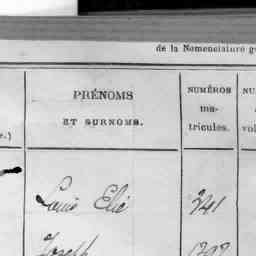 de la Nomenclature g
PRÉNOMS
ET SURNOMS.
NUMÉROS
ma-
tricules.
NU
vol
e.)
Louis Elie 241
Joseph